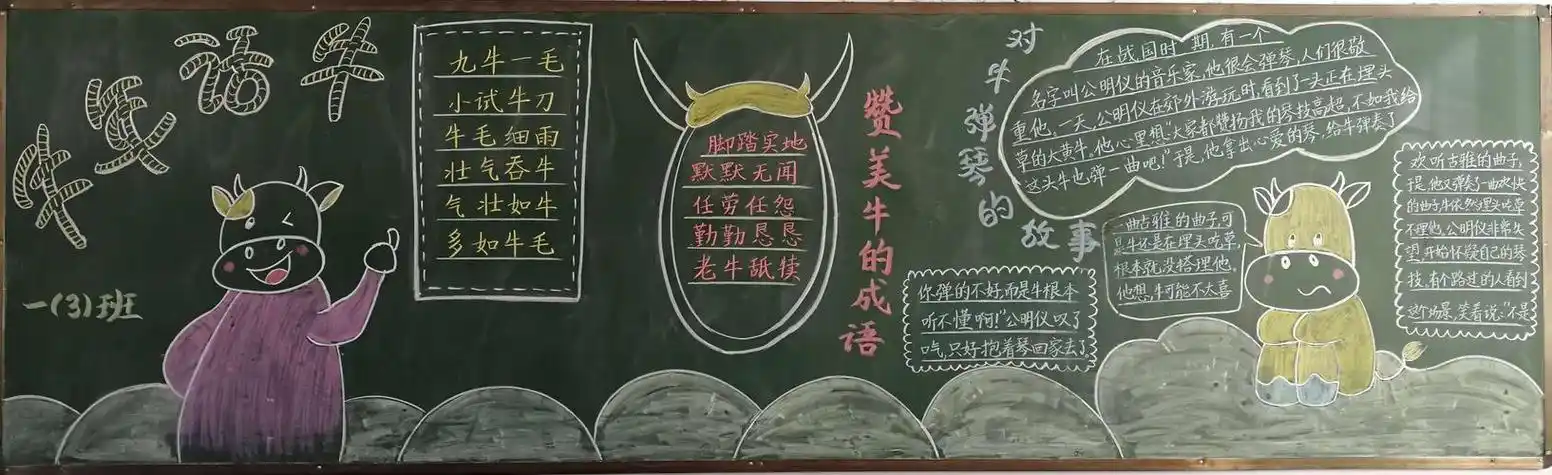 牛
话牛
一(3)班
九牛一毛
小试牛刀
牛毛细雨
壮气吞牛
气壮如牛
多如牛毛
脚踏实地
默默无闻
任劳任怨
勤勤恳恳
老牛舐犊
赞美牛的成语
对牛弹琴的故事
在战国时期,有一个
名字叫公明仪的音乐家,他很会弹琴,人们很敬
重他。一天,公明仪在郊外游玩时,看到了一头正在埋头
草的大黄牛。他心里想"大家都赞扬我的琴技高超,不如我给
这头牛也弹一曲吧!"于是,他拿出心爱的琴,给牛弹奏了
一曲古雅的曲子,可
是牛还是在埋头吃草,
根本就没搭理他。
他想,牛可能不大喜
欢听古雅的曲子,
于是,他又弹奏了一曲欢快
的曲子,牛依然埋头吃草
不理他,公明仪非常失
望,开始怀疑自己的琴
技,有个路过的人看到
这个场景,笑着说:"不是
你弹的不好,而是牛根本
听不懂啊!"公明仪叹了
口气,只好抱着琴回家去了。